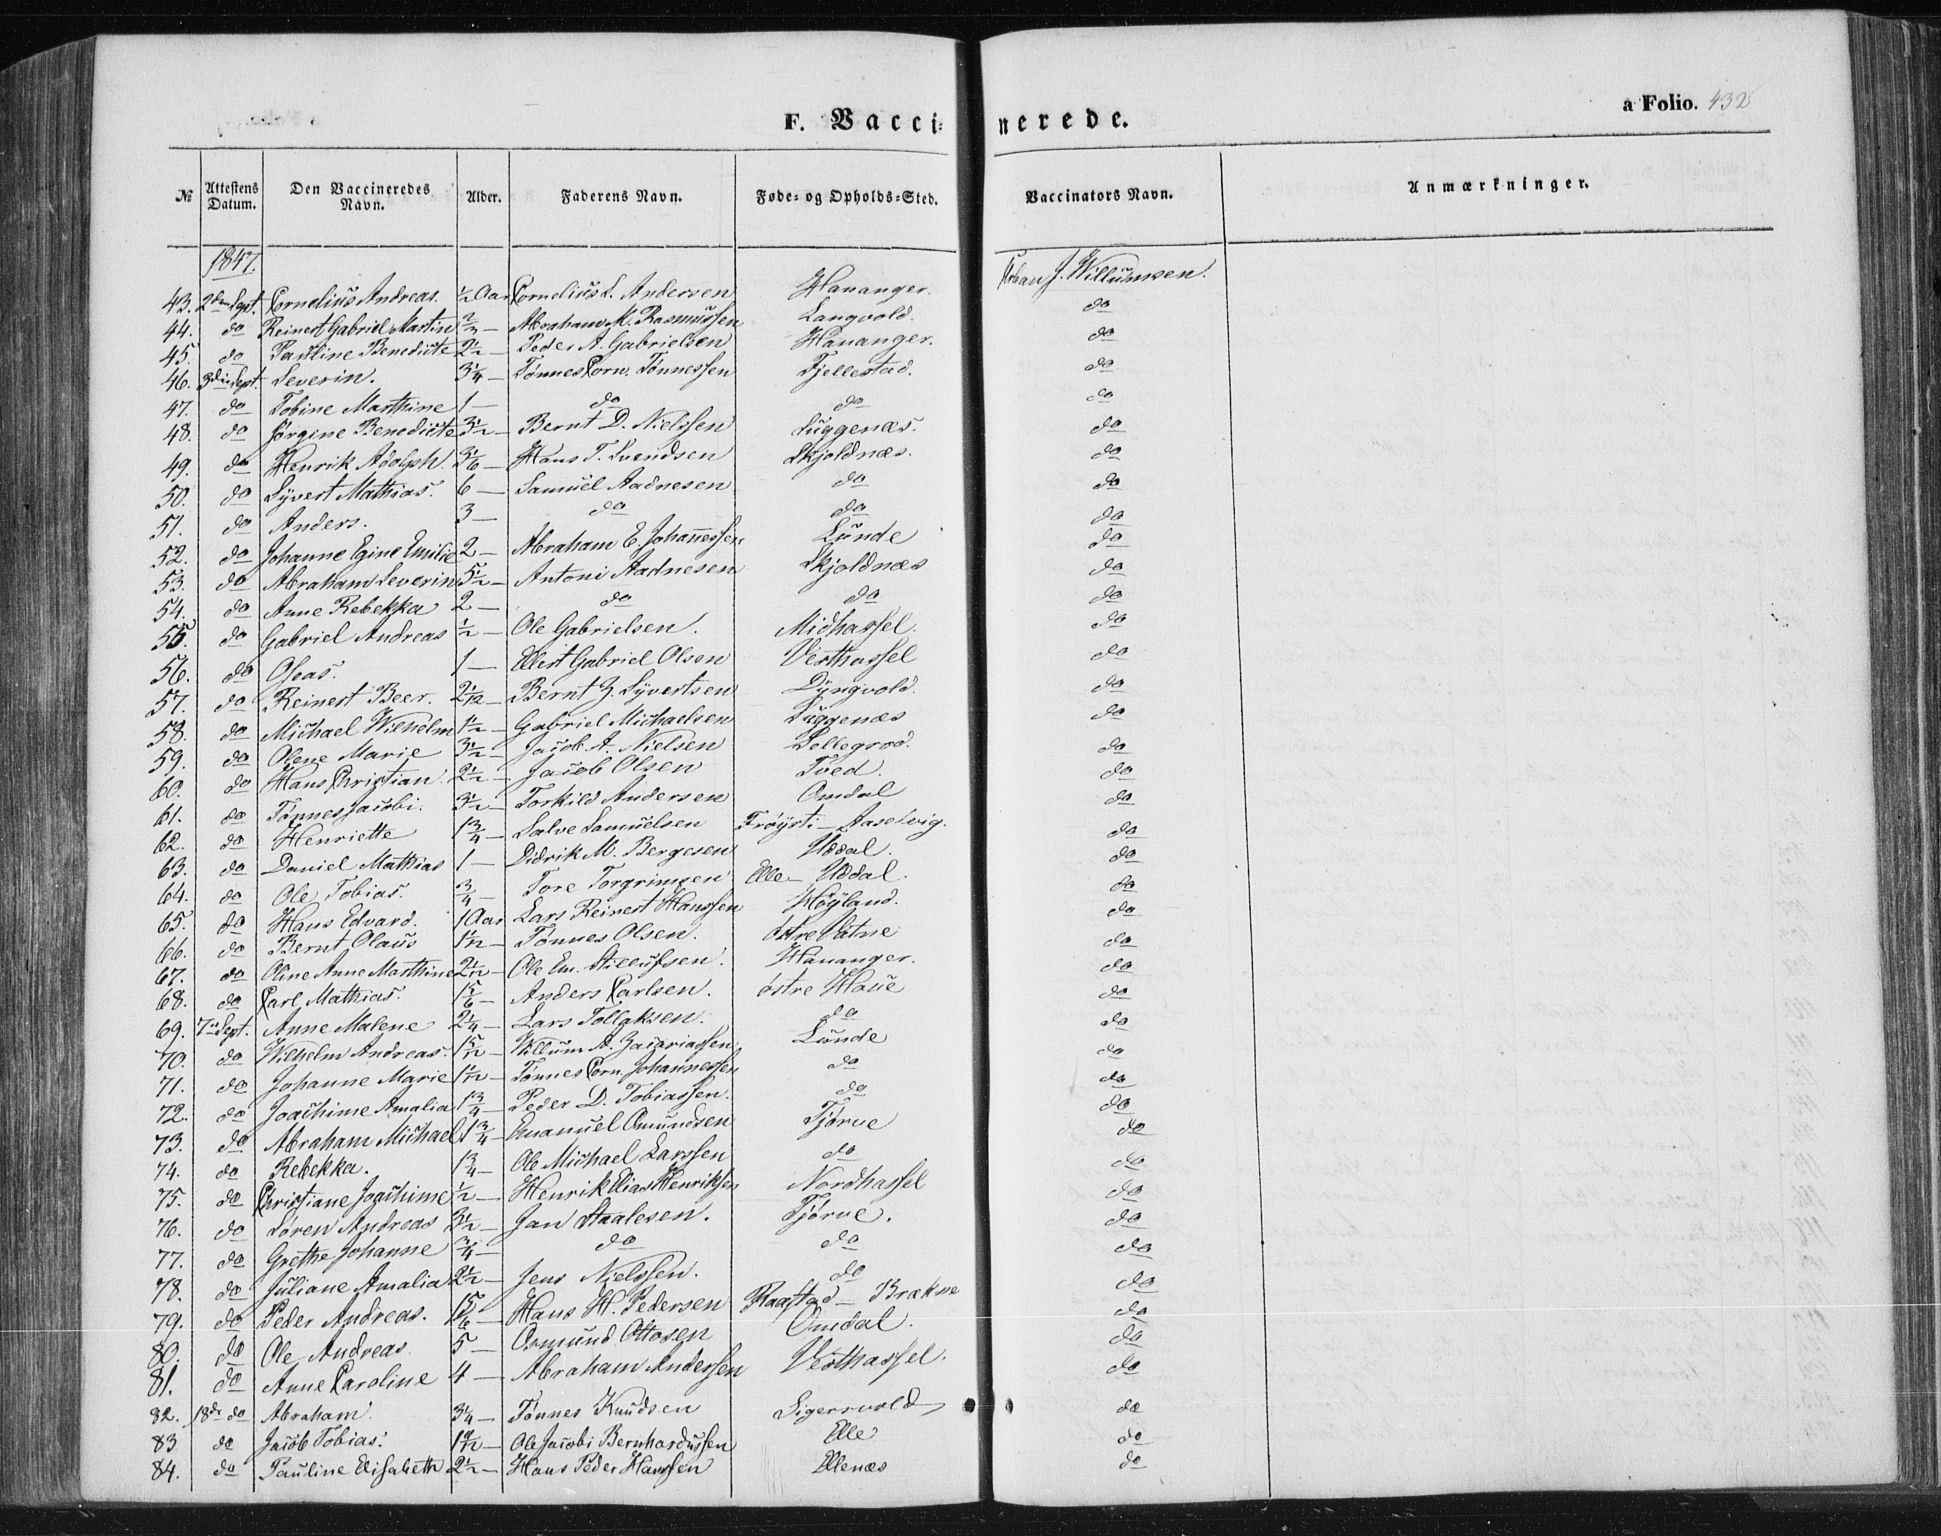 F. Vaccinerede.
a Folio. 432
№ | Attestens Datum. | Den Vaccineredes Navn. | Alder. | Faderens Navn. | Føde- og Opholds-Sted. | Vaccinators Navn. | Anmærkninger.
1847.
43. 2den Sept. Cornelius Andreas. ½ Aar Cornelius L. Andersen Hananger. J. Willumsen.
44. do Reinert Gabriel Martin 2/3 — Abraham M. Rasmussen Langvold. do
45. do Pauline Benedicte 2½ — Peder A. Gabrielsen Hananger. do
46. 3die Sept. Severin. 3¼ — Tønnes Corn. Tønnessen Fjellestad. do
47. do Tobine Marthine 1 — do do do
48. do Jørgine Benedicte 3½ — Bernt D. Nielssen Luggenæs. do
49. do Henrik Adolph. 3 1/6 — Hans T. Svendsen Skjoldnæs. do
50. do Syvert Mathias. 6 — Samuel Aadnesen do do
51. do Anders. 3 — do do do
52. do Johanne Egine Emilie 2 — Abraham E. Johannessen Lunde do
53. do Abraham Severin 5½ — Antoni Aadnesen Skjoldnæs do
54. do Anne Rebekka 2 — do do do
55. do Gabriel Andreas ½ — Ole Gabrielsen. Midhassel. do
56. do Oleas. 1 — Ellert Gabriel Olsen Vesthassel do
57. do Reinert Beer. 2 1/12 — Bernt G. Syvertsen Dyngvold. do
58. do Michael Wilhelm 1½ — Gabriel Michaelsen Luggenæs do
59. do Olene Marie 3½ — Jacob A. Nielsen Lellegrod. do
60. do Hans Christian 2½ — Jacob Olsen Tved. do
61. do Tønnes Jacobi. 3½ — Torkild Andersen Omdal do
62. do Henriette 1¾ — Salve Samuelsen Frøyst: — Aaselvig. do
63. do Daniel Mathias 1 — Didrik M. Bergesen Uddal. do
64. do Ole Tobias. ¾ — Tore Torgrimsen Elle — Uddal. do
65. do Hans Edvard. 1 Aar Lars Reinert Hanssen Høyland. do
66. do Bernt Olaus 1 1/12 — Tønnes Olsen. østre Vatne do
67. do Oline Anne Marthine 2 1/12 — Ole Em. Stillufsen. Hananger. do
68. do Carl Mathias. 1 5/6 — Anders Carlsen. østre Haue do
69. 7de Sept. Anne Malene 2¼ — Lars Tollaksen. do do
70. do Wilhelm Andreas. 1 5/12 — Willum A. Zacariassen Lunde do
71. do Johanne Marie 1 1/12 — Tønnes Corn. Johannessen do do
72. do Joachime Amalia 1¾ — Peder D. Tobiassen. do do
73. do Abraham Michael 1¾ — Emanuel Omundsen Tjørve do
74. do Rebekka. 1¾ — Ole Michael Larssen do do
75. do Christiane Joachime ½ — Henrik Elias Henriksen Nordhassel do
76. do Søren Andreas 3½ — Jan Staalesen. Tjørve. do
77. do Grethe Johanne ¾ — do do do
78. do Juliane Amalia 2½ — Jens Nielssen. do do
79. do Peder Andreas. 1 5/6 — Hans H. Pedersen Raastad — Brækne do
80. do Ole Andreas. 5 — Osmund Ottosen Omdal. do
81. do Anne Caroline 4 — Abraham Anderssen Vesthassel. do
82. 18de do Abraham. 3¼ — Tønnes Knudsen Sigersvold do
83 do Jacob Tobias. Ole Jacobi Bernhardussen Elle do
84. do Pauline Elisabeth 2½ — Hans Peder Hanssen Ellenæs do